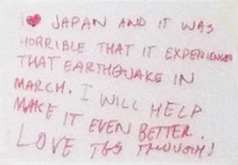 I ❤ JAPAN AND IT WAS
HORRIBLE THAT IT EXPERIENCED
THAT EARTHQUAKE IN
MARCH. I WILL HELP
MAKE IT EVEN BETTER.
LOVE THOUGH!